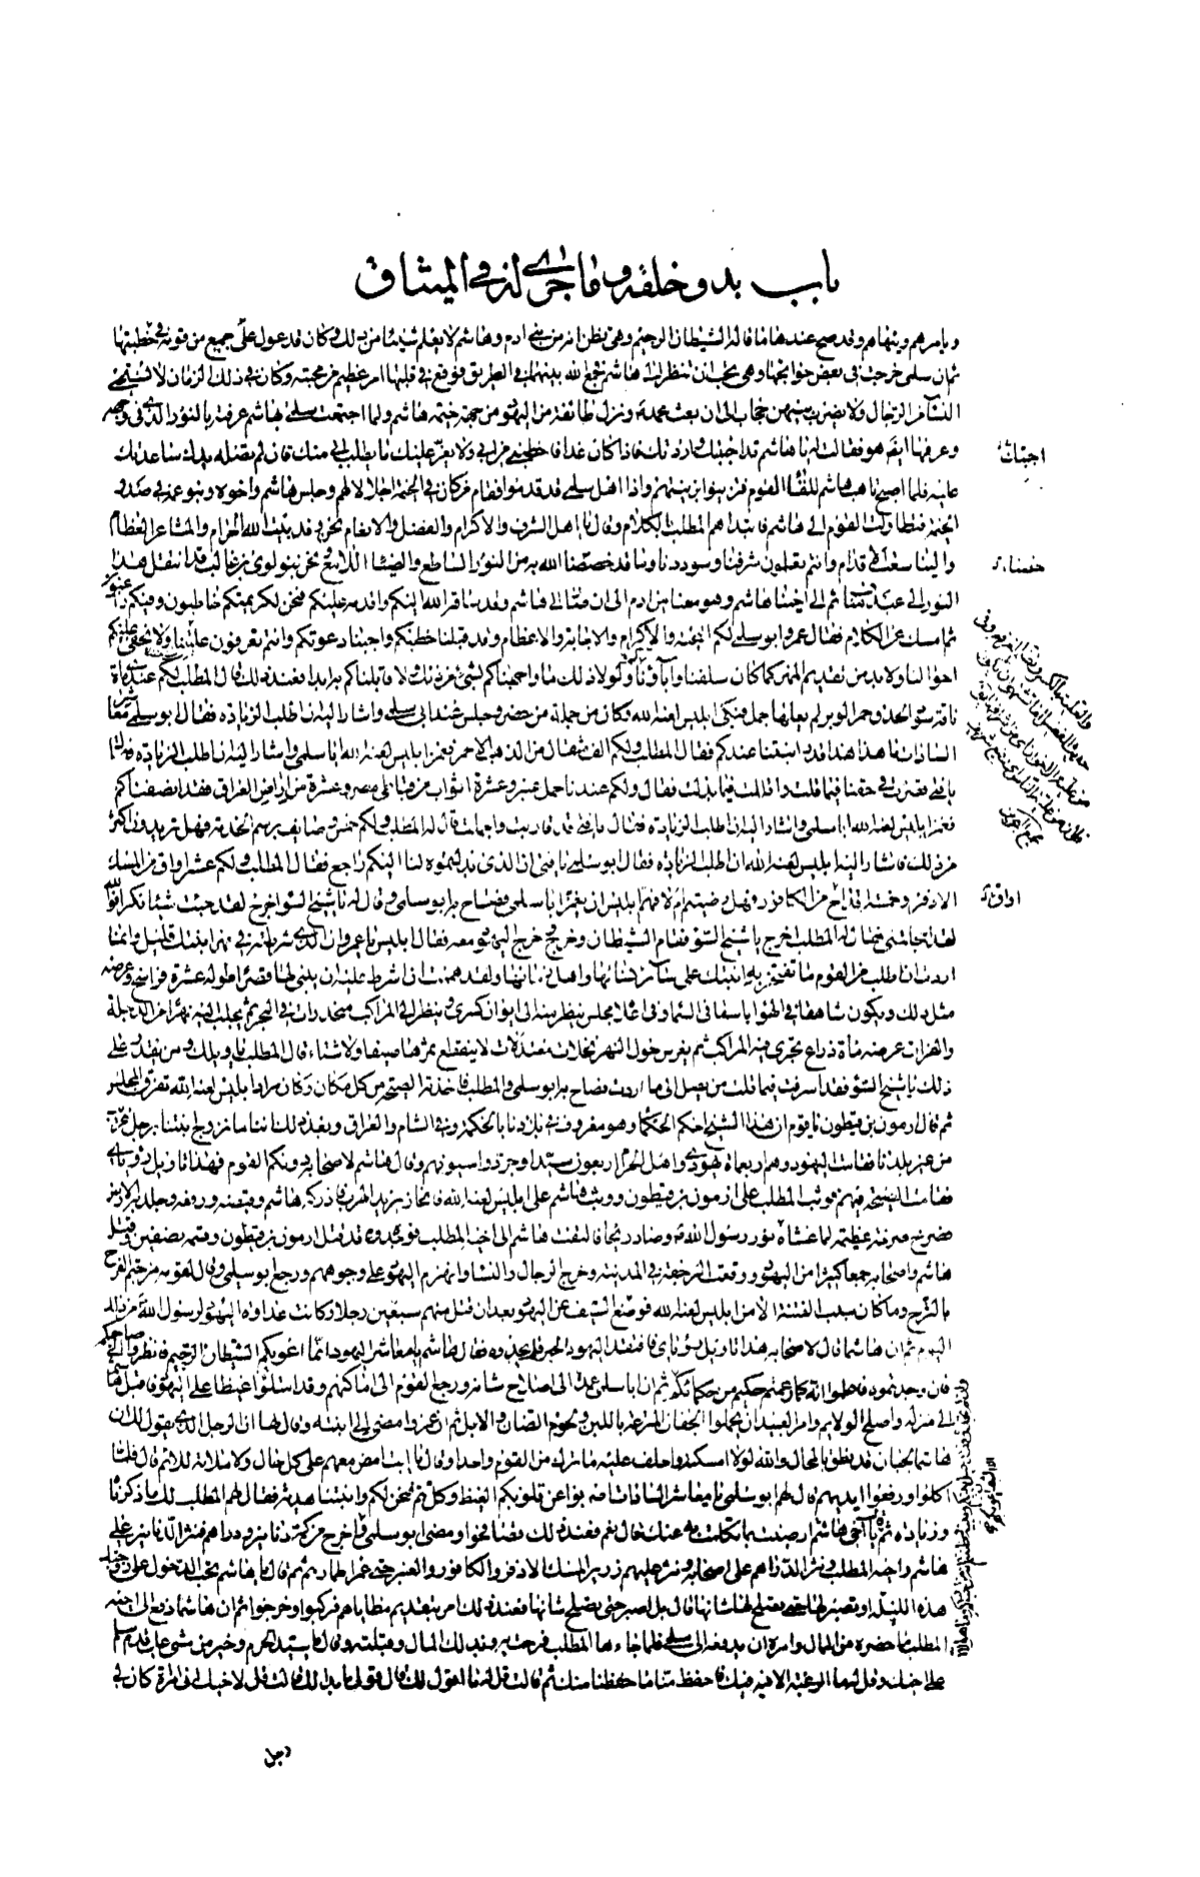 باب بدو خلقه وما جرى له في الميثاق
ويامرهم وينهاهم وقد صح عندها ما قاله الشيطان الرجيم وهي تظن انه من بني ادم وهاشم لا يعلم شيئا من ذلك وكان قد عول على جميع من قومه في خطبتها
ثم ان سلمى خرجت في بعض حوائجها وهي تحب ان تنظر الى هاشم فجمع الله بينهما في الطريق فوقع في قلبها امر عظيم من محبته وكان في ذلك الزمان لا تستحي
النساء من الرجال ولا يضرب بينهن حجاب الى ان بعث محمد ونزل طائفة من اليهود من جهة خيمة هاشم ولما اجتمعت سلمى بهاشم عرفته بالنور الذي في وجهه
وعرفها ايضا هو فقالت له يا هاشم قد احببتك واردتك فاذا كان غدا فاخطبني من ابي ولا يعز عليك ما يطلب ابي منك فان لم تصله يدك ساعدتك
عليه فلما اصبح تاهب هاشم للقاء القوم فزينوا بزينتهم واذا اهل سلمى قد قدموا فقام من كان في الخيمة اجلالا لهم وجلس هاشم واخوه وبنو عمه في صدر
الخيمة فتطاولت القوم الى هاشم فابتداهم المطلب بالكلام وقال يا اهل الشرف والاكرام والفضل والانعام نحن وفد بيت الله الحرام والمشاعر العظام
والينا سعت الاقدام وانتم تعلمون شرفنا وسوددنا وما قد خصصنا الله به من النور الساطع والضياء اللامع نحن بنو لوي بن غالب قد انتقل هذا
النور الى عبد مناف ثم الى اخينا هاشم وهو معنا من ادم الى ان صار الى هاشم وقد ساقه الله اليكم واقدمه عليكم فنحن لكريمتكم خاطبون وفيكم راغبون
ثم امسك عن الكلام فقال عمرو ابو سلمى لكم التحية والاكرام والاجابة والاعظام وقد قبلنا خطبتكم واجبنا دعوتكم وانتم تعرفون علينا ولا يخفى عليكم
احوالنا ولا بد من تقديم المهر كما كان سلفنا واباؤنا ولولا ذلك ما واجهناكم بشيء من ذلك ولا قابلناكم به ابدا فعند ذلك قال المطلب لكم عندي مائة
ناقة سود الحدق حمر الوبر لم يعلها جمل فبكى ابليس لعنه الله وكان من جملة من حضر وجلس عند ابي سلمى واشار اليه ان اطلب الزيادة فقال ابو سلمى معاشر
السادات ما هذا قدر ابنتنا عندكم فقال المطلب ولكم الف مثقال من الذهب الاحمر فغمز ابليس لعنه الله ابا سلمى واشار اليه ان اطلب الزيادة فقال
يا فتى قصرت في حقنا فيما قلت واقللت فيما بذلت فقال ولكم عندنا حمل عنبر وعشرة اثواب من قباطي مصر وعشرة من اراضي العراق فقد انصفناكم
فغمز ابليس لعنه الله ابا سلمى واشار اليه ان اطلب الزيادة فقال يا فتى قد قاربت واجملت قال له المطلب ولكم خمس وصائف برسم الخدمة فهل تريدون اكثر
من ذلك فاشار اليه ابليس لعنه الله ان اطلب الزيادة فقال ابو سلمى يا فتى ان الذي بذلتموه لنا اليكم راجع فقال المطلب ولكم عشر اواق من المسك
الاذفر وخمسة اقداح من الكافور فهل رضيتم ام لا فهم ابليس ان يغمز ابا سلمى فصاح به ابو سلمى وقال له يا شيخ السوء اخرج لقد جئت شيئا نكرا فوالله
لقد اخجلتني فقال له المطلب اخرج يا شيخ السوء فقام الشيطان وخرج وخرج اليهود معه فقال ابليس يا عمرو ان الذي شرطته في مهر ابنتك قليل وانما
اردت ان اطلب من القوم ما تفتخر به ابنتك على سائر نسائها واهل زمانها ولقد هممت ان اشرط عليه ان يبني لها قصرا طوله عشرة فراسخ وعرضه
مثل ذلك ويكون شاهقا في الهواء باسقا في السماء وفي اعلاه مجلس ينظر منه الى ايوان كسرى وينظر الى المراكب منحدرات في البحر ثم يجلب اليه نهرا من الدجلة
والفرات عرضه مائة ذراع تجري فيه المراكب ثم يغرس حول النهر نخلات معتدلات لا ينقطع ثمرها صيفا ولا شتاء قال المطلب يا ويلك ومن يقدر على
ذلك يا شيخ السوء فقد اسرفت فيما قلت من يصل الى ما اردت فصاح به ابو سلمى والمطلب فاخذته الصيحة من كل مكان وكان مراد ابليس لعنه الله تفرق المجلس
ثم قال ارمون بن قيطون يا قوم ان هذا الشيخ احكم الحكماء وهو معروف في بلادنا بالحكمة وفي الشام والعراق وبعد ذلك اننا ما نزوج ابنتنا برجل غريب
من غير بلدنا فقامت اليهود وهم اربعمائة يهودي واهل الحرم اربعون سيدا وجردوا سيوفهم وقال هاشم لاصحابه دونكم القوم فهذا تاويل رؤياي
فقامت الصيحة فيهم فوثب المطلب على ارمون بن قيطون ووثب هاشم على ابليس لعنه الله فانحاز يريد الهرب فادركه هاشم وقبضه ورفعه وجلد به الارض
فصرخ صرخة عظيمة لما غشاه نور رسول الله وصار ريحا فالتفت هاشم الى اخيه المطلب فوجده قد قتل ارمون بن قيطون وقسمه نصفين وقتل
هاشم واصحابه جمعا كثيرا من اليهود ووقعت الرجفة في المدينة وخرج الرجال والنساء وانهزم اليهود على وجوههم ورجع ابو سلمى وقال لقومه مزجتم الفرح
بالترح وما كان سبب الفتنة الا من ابليس لعنه الله فوضع السيف عن اليهود بعد ان قتل منهم سبعين رجلا وكانت عداوة اليهود لرسول الله من ذلك
اليوم ثم ان هاشما قال لاصحابه هذا تاويل رؤياي فافتقد اليهود الحبر فلم يجدوه فقال هاشم يا معاشر اليهود انما اغويكم الشيطان الرجيم فانظروا الى صاحبكم
فان وجدتموه فاعلموا انه كما زعمتم حكيم من حكمائكم ثم ان ابا سلمى عمد الى اصلاح شانه ورجع القوم الى اماكنهم وقد امتلؤا غيظا على اليهود فاقبل هاشم
الى منزله واصلح الولائم وامر العبيد ان يحملوا الجفان المترعة باللبن ولحوم الضان والابل ثم ان عمروا مضى الى ابنته وقال لها ان الرجل الذي يقول لك ان
هاشما لجبان قد نطق بالمحال والله لولا امسكته واحلف عليه ما ترك من القوم واحدا وقالت يا ابت امض معهم على كل حال ولا ملامة للائم قال فلما
اكلوا ورفعوا ايديهم قال لهم ابو سلمى يا معاشر السادات اصرفوا عن قلوبكم الغيظ وكل هم نحن لكم وابنتنا هدية فقال لهم المطلب لك ما ذكرنا
وزيادة ثم قال يا اخي هاشم ارضيت بما تكلمت به عنك قال نعم فعند ذلك تصافحوا ومضى ابو سلمى واخرج من كمه دنانير ودراهم فنثر الدنانير على
هاشم واخيه المطلب ونثر الدراهم على اصحابه ونثر عليهم زرير المسك الاذفر والكافور والعنبر حتى غمر اطمارهم ثم قال يا هاشم تحب الدخول على زوجتك
هذه الليلة او تصبر لها حتى تصلح لها شانها قال بل اصبر حتى تصلح شانها فعند ذلك امر بتقديم مطاياهم فركبوا وخرجوا ثم ان هاشما دفع الى اخيه
المطلب ما حضره من المال وامره ان يدفعه الى سلمى فلما جاءها المطلب فرحت به وبذلك المال وقبلته وقالت يا سيد الحرم وخير من مشى على قدم سلم
على اخيك وقل له ما الرغبة الا فيه فاحفظ منا ما حفظنا منك ثم قالت قل له ما اقول لك قال قولي ما بدا لك قالت قل لاخيك اني امراة كان لي
رجل
اجبتك
خصناء
اواق